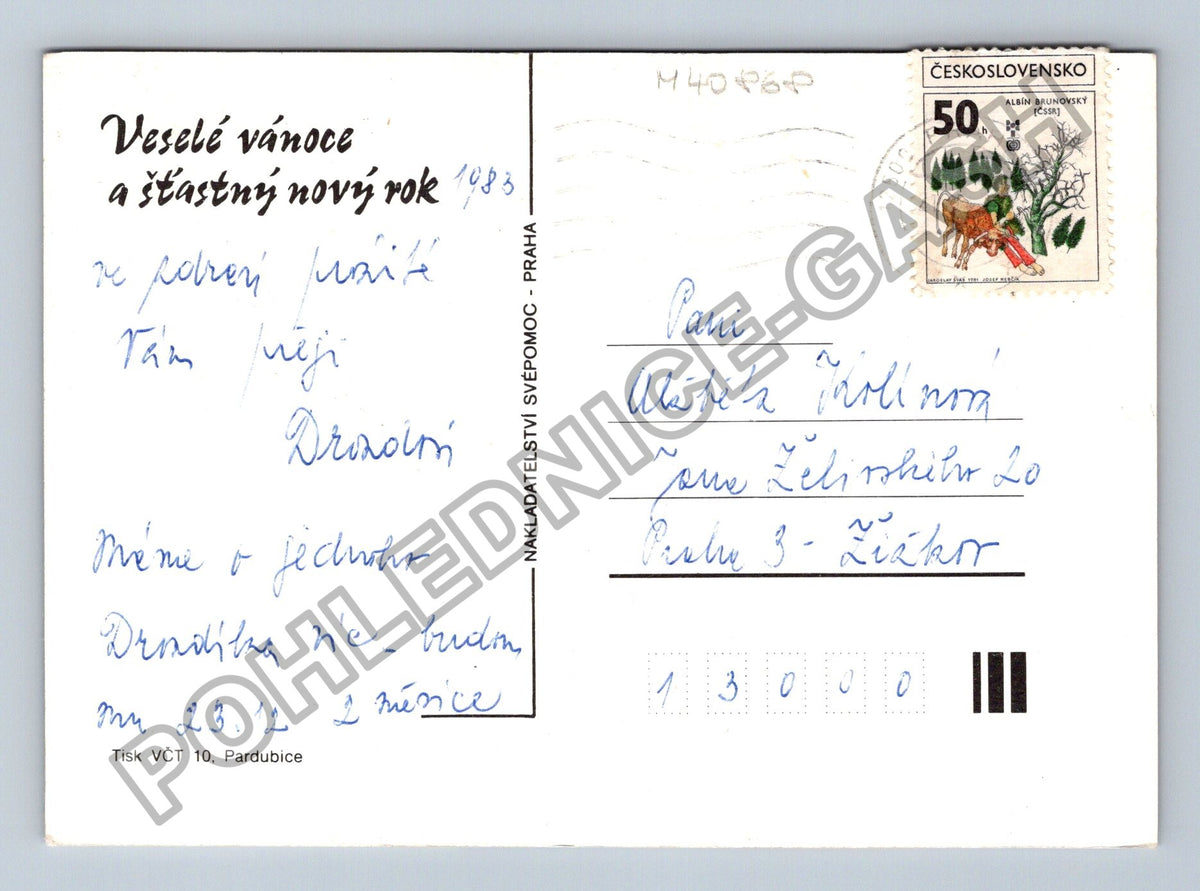 Veselé vánoce
a šťastný nový rok 1983
ve zdraví prožité
Vám přejí
Drozdovi
Máme o jednoho
Drozdíka víc – budou
mu 23.12 2 měsíce
Tisk VČT 10, Pardubice
NAKLADATELSTVÍ SVÉPOMOC - PRAHA
M 40
ČESKOSLOVENSKO
ALBÍN BRUNOVSKÝ
[ČSSR]
50 h
1981 JOSEF HERČÍK
Paní
Alžběta Kolínová
Jana Želivského 20
Praha 3 - Žižkov
1 3 0 0 0
POHLEDNICE-GACH